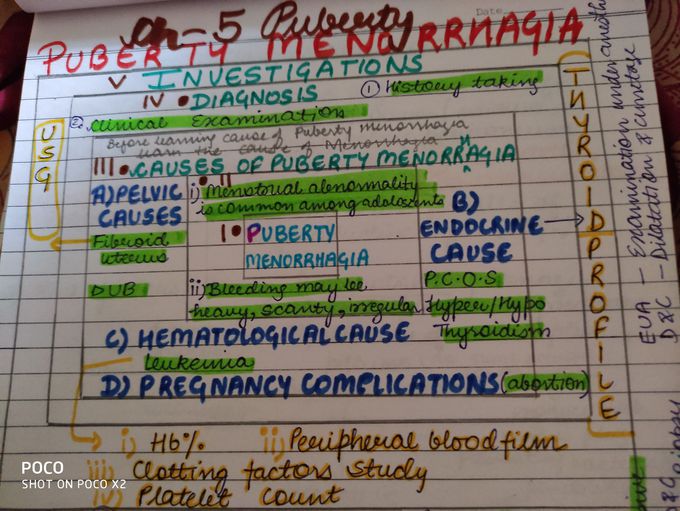 Ch-5 Puberty
Date
PUBERTY MENORRHAGIA
V INVESTIGATIONS
IV • DIAGNOSIS
① History taking
② Clinical Examination
Before learning cause of Puberty menorrhagia
learn the cause of Menorrhagia
III • CAUSES OF PUBERTY MENORRAGIA
A) PELVIC CAUSES
Fibroid uterus
DUB
II
i) Menstrual abnormality
is common among adolescents
I • PUBERTY
MENORRHAGIA
ii) Bleeding may be
heavy, scanty, irregular
B)
ENDOCRINE
CAUSE
P.C.O.S
Hyper/Hypo
Thyroidism
C) HEMATOLOGICAL CAUSE
Leukemia
D) PREGNANCY COMPLICATIONS (abortion)
USG
THYROID PROFILE
i) Hb% ii) Peripheral blood film
iii) Clotting factors study
iv) Platelet count
EUA - Examination under
D&C - Dilatation & curettage
D&C
POCO
SHOT ON POCO X2